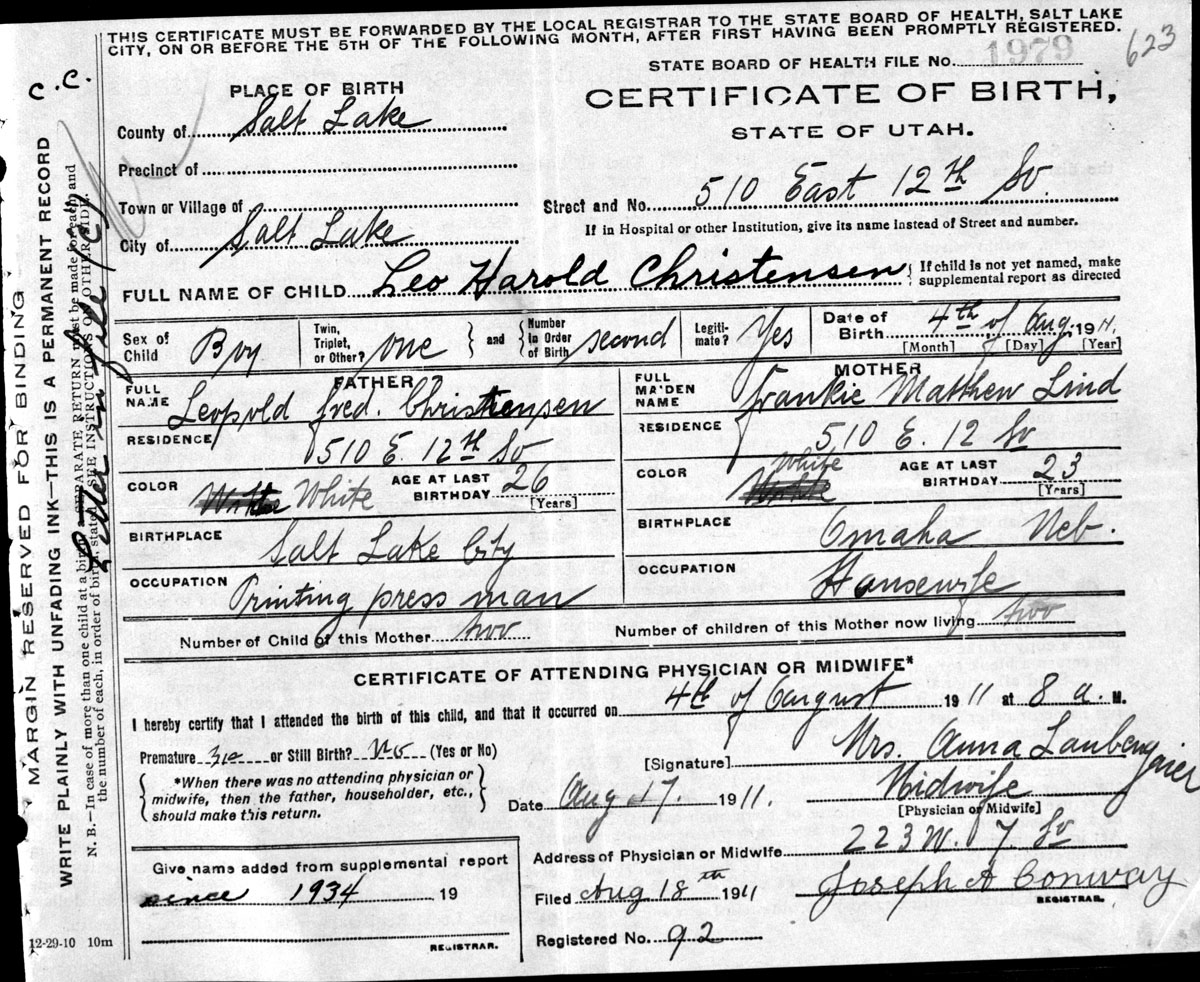 THIS CERTIFICATE MUST BE FORWARDED BY THE LOCAL REGISTRAR TO THE STATE BOARD OF HEALTH, SALT LAKE
CITY, ON OR BEFORE THE 5TH OF THE FOLLOWING MONTH, AFTER FIRST HAVING BEEN PROMPTLY REGISTERED.
623
STATE BOARD OF HEALTH FILE No. 1979
C. C.
PLACE OF BIRTH
CERTIFICATE OF BIRTH,
STATE OF UTAH.
County of Salt Lake
Precinct of
Town or Village of
Street and No. 510 East 12th So.
City of Salt Lake
If in Hospital or other Institution, give its name instead of Street and number.
FULL NAME OF CHILD Leo Harold Christensen { If child is not yet named, make
supplemental report as directed
Sex of Child Boy Twin, Triplet, or Other? one } and { Number in Order of Birth second Legiti-mate? Yes Date of Birth 4th of Aug. 1911.
[Month] [Day] [Year]
FATHER
FULL NAME Leopold fred. Christensen
RESIDENCE 510 E. 12th So
COLOR White AGE AT LAST BIRTHDAY 26 [Years]
BIRTHPLACE Salt Lake City
OCCUPATION Printing press man
MOTHER
FULL MAIDEN NAME Frankie Matthew Lind
RESIDENCE 510 E. 12 So
COLOR White AGE AT LAST BIRTHDAY 23 [Years]
BIRTHPLACE Omaha Neb.
OCCUPATION Hansewife
Number of Child of this Mother two Number of children of this Mother now living two
CERTIFICATE OF ATTENDING PHYSICIAN OR MIDWIFE*
I hereby certify that I attended the birth of this child, and that it occurred on 4th of August 1911 at 8 a. M.
Premature no or Still Birth? No (Yes or No)
[Signature] Mrs. Anna Laubengaier
*When there was no attending physician or
midwife, then the father, householder, etc.,
should make this return.
Date Aug 17. 1911. Midwife
[Physician or Midwife]
Address of Physician or Midwife 223 W. 7. So
Give name added from supplemental report
since 1934 19
REGISTRAR.
Filed Aug 18th 1911 Joseph A Conway
REGISTRAR.
Registered No. 92
12-29-10 10m
MARGIN RESERVED FOR BINDING
WRITE PLAINLY WITH UNFADING INK—THIS IS A PERMANENT RECORD
N. B.—In case of more than one child at a birth, a SEPARATE RETURN must be made for each, and
the number of each, in order of birth, stated. SEE INSTRUCTIONS ON OTHER SIDE.